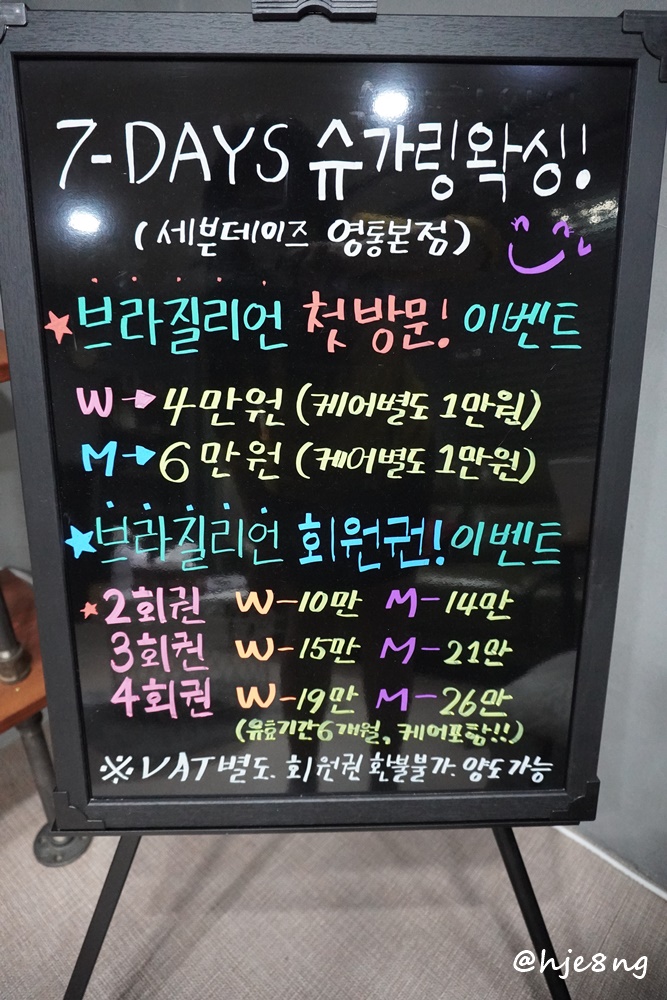 7-DAYS 슈가링왁싱!
(세븐데이즈 영통본점)
★브라질리언 첫방문! 이벤트
W→4만원 (케어별도 1만원)
M→6만원 (케어별도 1만원)
★브라질리언 회원권! 이벤트
★2회권 W-10만 M-14만
3회권 W-15만 M-21만
4회권 W-19만 M-26만
(유효기간6개월, 케어포함!!)
※VAT별도. 회원권 환불불가. 양도가능
@hje8ng